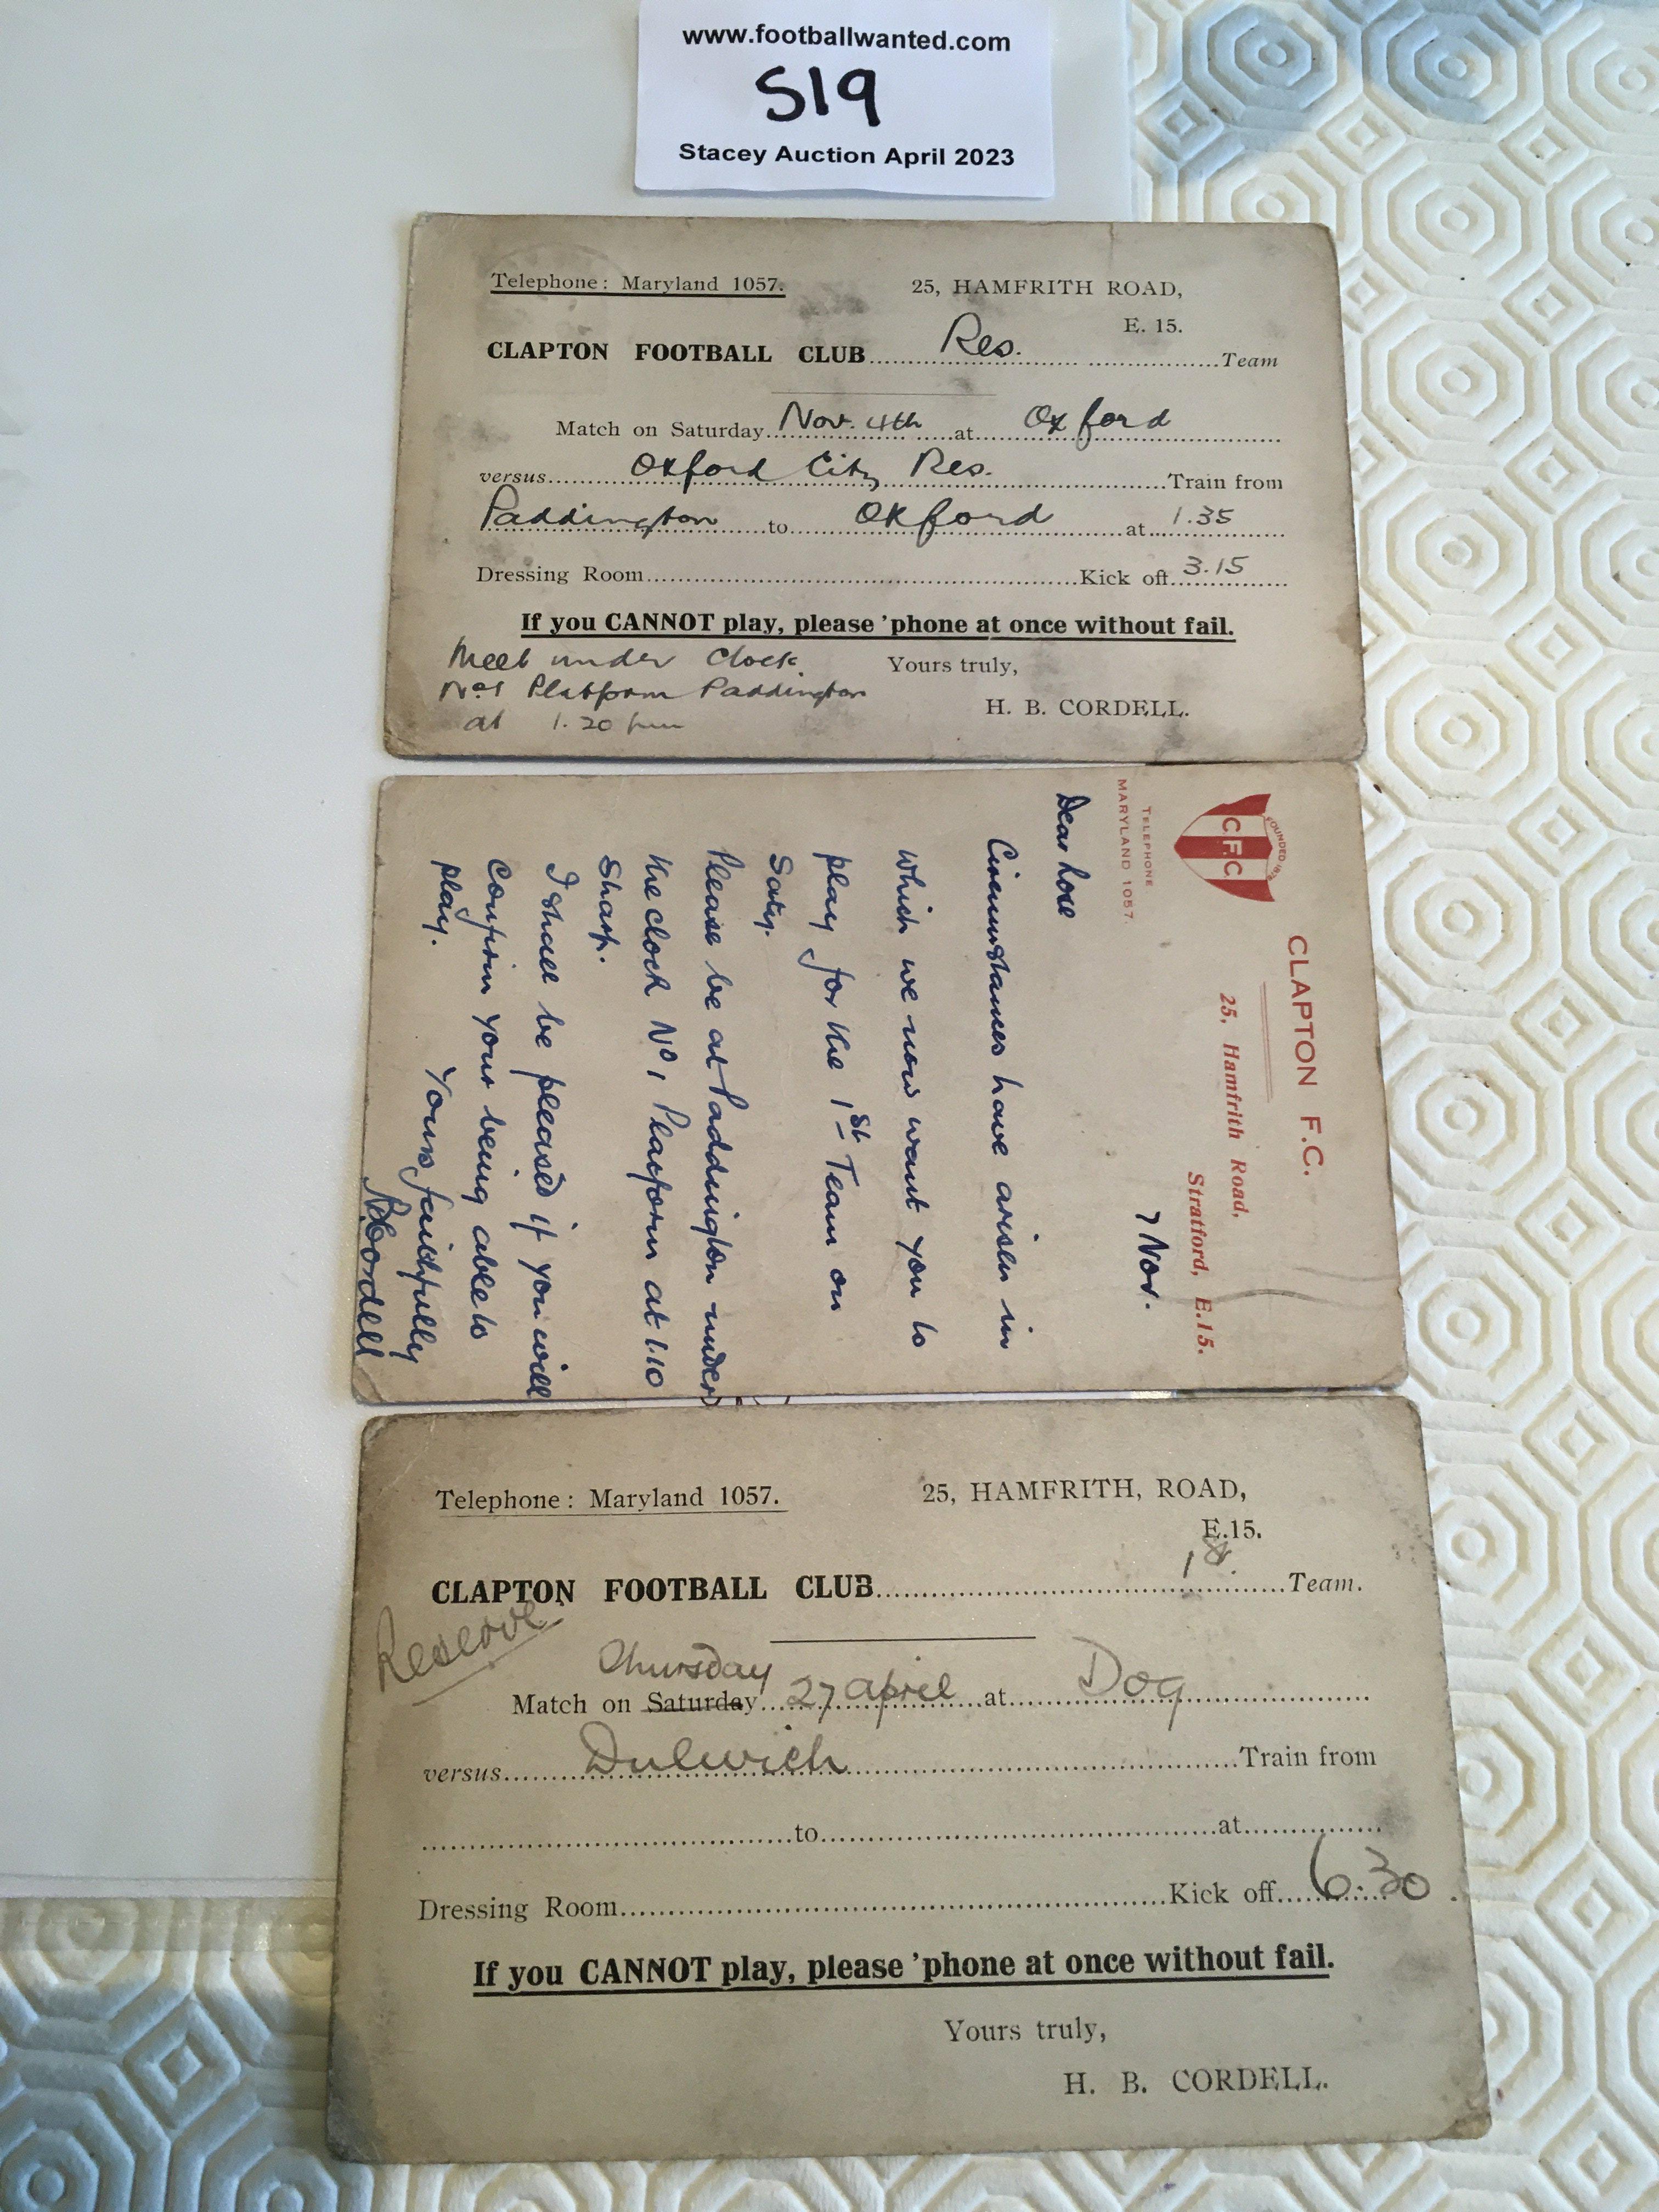 www.footballwanted.com
S19
Stacey Auction April 2023
Telephone: Maryland 1057.
25, HAMFRITH ROAD,
E. 15.
CLAPTON FOOTBALL CLUB Res. Team
Match on Saturday Nov. 4th at Oxford
versus Oxford City Res. Train from
Paddington to Oxford at 1.35
Dressing Room Kick off 3.15
If you CANNOT play, please 'phone at once without fail.
Meet under Clock
No 1 Platform Paddington
at 1.20 pm
Yours truly,
H. B. CORDELL.
CLAPTON F.C.
FOUNDED 1878
C.F.C.
25, Hamfrith Road,
Stratford, E.15.
TELEPHONE
MARYLAND 1057.
7 Nov.
Dear
Circumstances have arisen in
which we now want you to
play for the 1st Team on
Saty.
Please be at Paddington under
the clock No 1 Platform at 1.10
sharp.
I shall be pleased if you will
confirm your being able to
play.
Yours faithfully
HBCordell
Telephone: Maryland 1057.
25, HAMFRITH, ROAD,
E.15.
CLAPTON FOOTBALL CLUB 1st. Team.
Reserve
Thursday
Match on Saturday 27 april at Dog
versus Dulwich Train from
to at
Dressing Room Kick off 6.30
If you CANNOT play, please 'phone at once without fail.
Yours truly,
H. B. CORDELL.